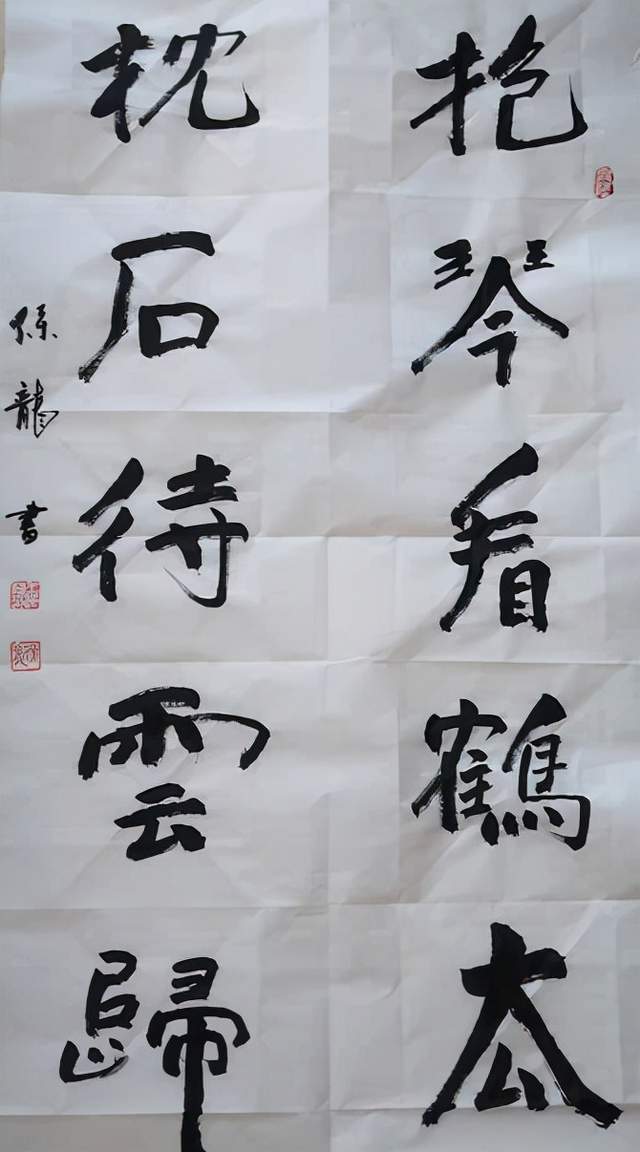 抱琴看鶴去
枕石待雲歸
孫龍書